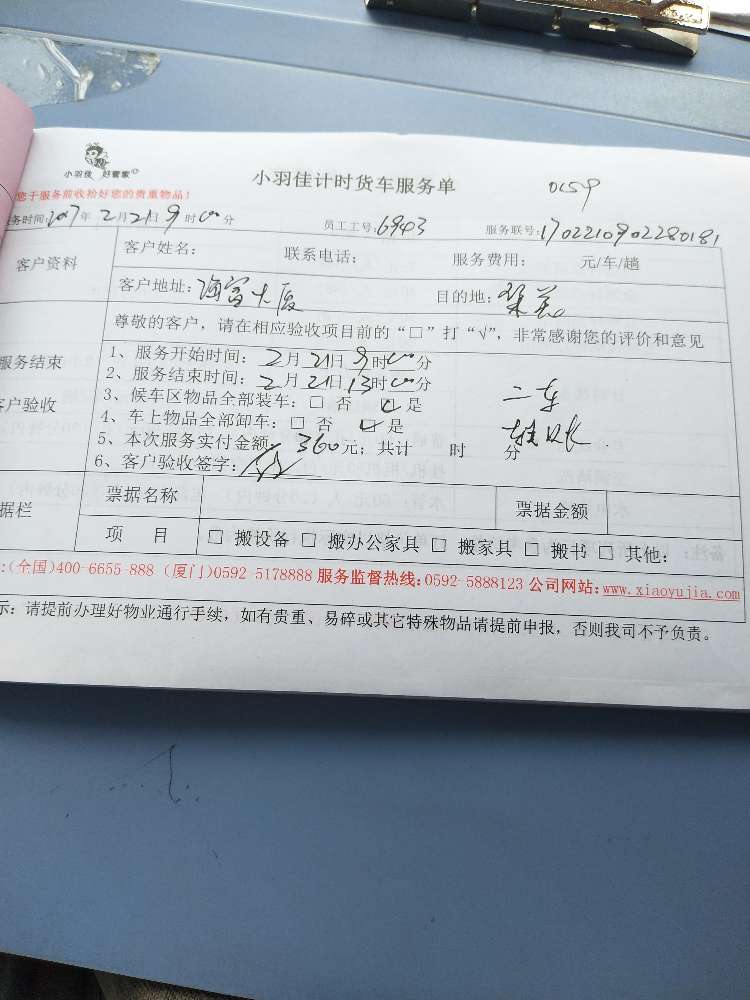 小羽佳 好管家
小羽佳计时货车服务单
0159
您于服务前收拾好您的贵重物品!
务时间:2017年2月21日9时00分 员工工号:6943 服务联号:1702210902280181
客户资料
客户姓名: 联系电话: 服务费用: 元/车/趟
客户地址:海富大厦 目的地:集美
尊敬的客户,请在相应验收项目前的“□”打“√”,非常感谢您的评价和意见
服务结束
客户验收
1、服务开始时间:2月21日9时00分
2、服务结束时间:2月21日13时00分
3、候车区物品全部装车:□ 否 ☑ 是
二车
4、车上物品全部卸车:□ 否 ☑ 是
5、本次服务实付金额:360元;共计 时 分
6、客户验收签字:
据栏
票据名称 票据金额
项 目 □ 搬设备 □ 搬办公家具 □ 搬家具 □ 搬书 □ 其他:
:(全国)400-6655-888 (厦门)0592-5178888 服务监督热线:0592-5888123 公司网站:www.xiaoyujia.com
示:请提前办理好物业通行手续,如有贵重、易碎或其它特殊物品请提前申报,否则我司不予负责。